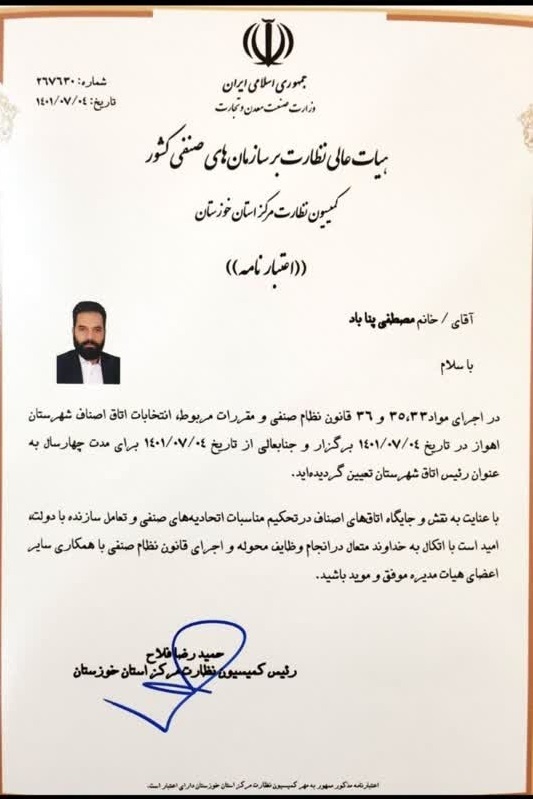 جمهوری اسلامی ایران
وزارت صنعت معدن و تجارت
شماره: ۲۶۷۶۳۰
تاریخ: ۱۴۰۱/۰۷/۰۴
هیات عالی نظارت بر سازمان های صنفی کشور
کمیسیون نظارت مرکز استان خوزستان
((اعتبار نامه))
آقای / خانم مصطفی پنا باد
با سلام
در اجرای مواد ۳۵،۳۳ و ۳۶ قانون نظام صنفی و مقررات مربوط، انتخابات اتاق اصناف شهرستان
اهواز در تاریخ ۱۴۰۱/۰۷/۰۴ برگزار و جنابعالی از تاریخ ۱۴۰۱/۰۷/۰۴ برای مدت چهارسال به
عنوان رئیس اتاق شهرستان تعیین گردیده‌اید.
با عنایت به نقش و جایگاه اتاق‌های اصناف در تحکیم مناسبات اتحادیه‌های صنفی و تعامل سازنده با دولت،
امید است با اتکال به خداوند متعال در انجام وظایف محوله و اجرای قانون نظام صنفی با همکاری سایر
اعضای هیات مدیره موفق و موید باشید.
حمید رضا فلاح
رئیس کمیسیون نظارت مرکز استان خوزستان
اعتبارنامه مذکور ممهور به مهر کمیسیون نظارت مرکز استان خوزستان دارای اعتبار است.